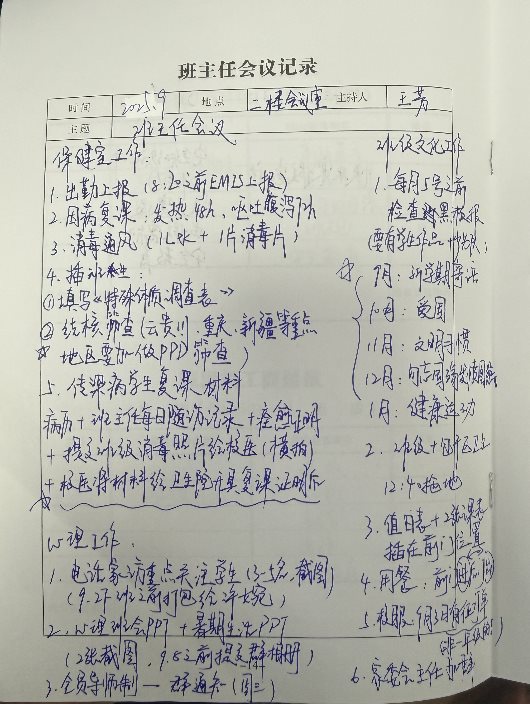 班主任会议记录
时间 2025.9 地点 二楼会议室 主持人 王芳
主题 班主任会议
保健室工作:
1. 出勤上报 (8:20之前EMIS上报)
2. 因病复课: 发热48h、呕吐腹泻72h
3. 消毒通风 (1L水 + 1片消毒片)
4. 插
①填写《特殊体质调查表》
② 结核筛查(云贵川、重庆、新疆等重点
地区要加做PPD筛查)
5. 传染病学生复课材料
病历 + 班主任每日随访记录 + 痊愈证明
+ 提交班级消毒照片给校医 (横拍)
+ 校医课材料给卫生院开具复课证明后
心理工作:
1. 电话家访重点关注学生 (3-5名, 截图)
(9.27 之前打包给许婉)
2. 心理班会PPT + 暑期生活PPT
(2张截图, 9.5之前提交群相册)
3. 全员导师制 — 群通知 (周三)
班级文化工作
1. 每月5号之前
检查 黑板报
(要有学生作品
9月: 新学期寄语
10月: 爱国
11月: 文明习惯
12月:
1月: 健康运动
2. 班级
12:40拖地
3. 值日表 + 2张课表
插在前门位置
4. 用餐: 前门
5. 校服
6. 家委会主任